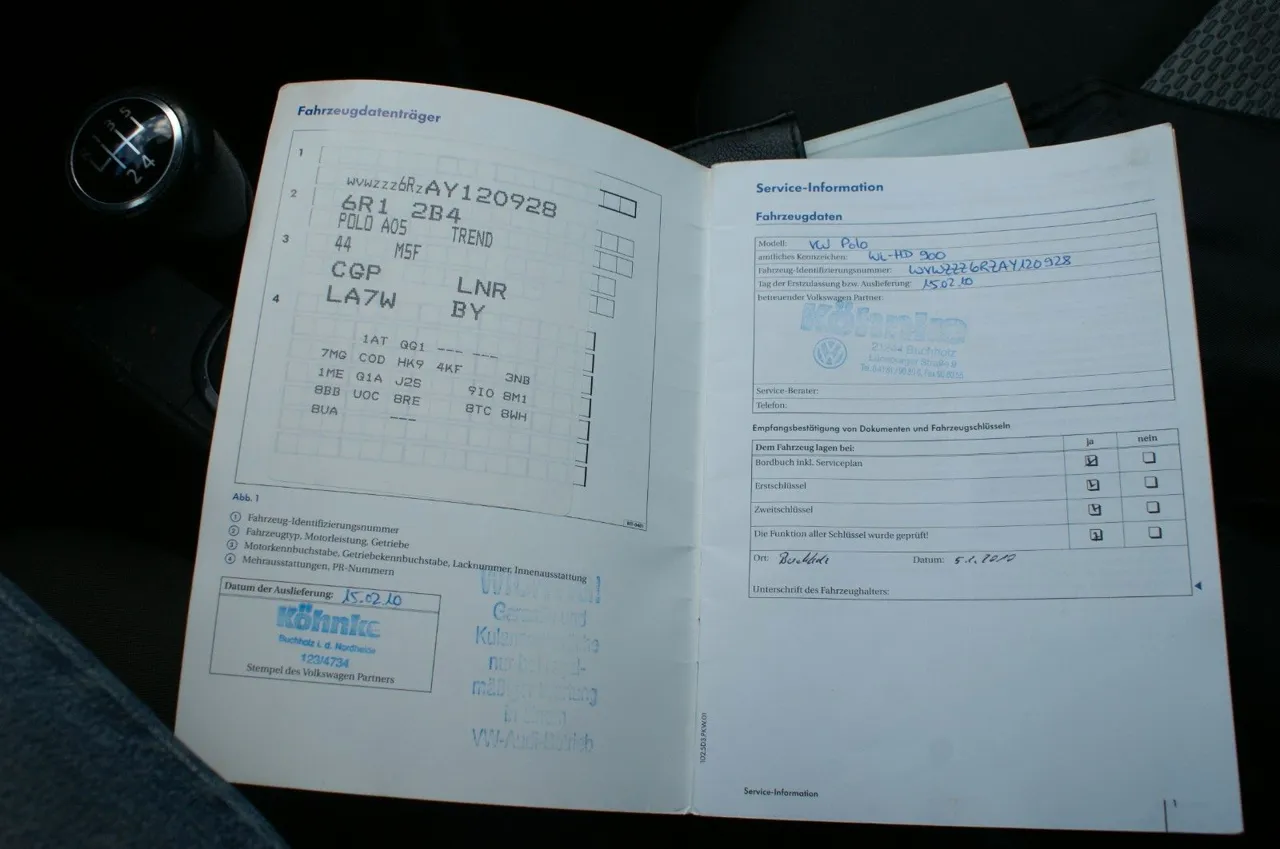 1
3
5
2
4
Fahrzeugdatenträger
1
WVWZZZ6RZAY120928
2
6R1 2B4
POLO A05 TREND
3
44 M5F
CGP LNR
4
LA7W BY
1AT GG1 --- ---
7MG COD HK9 4KF 3NB
1ME G1A J2S 9IO 8M1
8BB UOC 8RE 8TC 8WH
8UA ---
Abb. 1
① Fahrzeug-Identifizierungsnummer
② Fahrzeugtyp, Motorleistung, Getriebe
③ Motorkennbuchstabe, Getriebekennbuchstabe, Lacknummer, Innenausstattung
④ Mehrausstattungen, PR-Nummern
Datum der Auslieferung: 15.02.10
Köhnke
Buchholz i. d. Nordheide
123/4734
Stempel des Volkswagen Partners
VW-Audi-Betrieb
Service-Information
Fahrzeugdaten
Modell: VW Polo
amtliches Kennzeichen: WL-HD 900
Fahrzeug-Identifizierungsnummer: WVWZZZ6RZAY120928
Tag der Erstzulassung bzw. Auslieferung: 15.02.10
betreuender Volkswagen Partner:
Köhnke
21244 Buchholz
Lüneburger Straße
Service-Berater:
Telefon:
Empfangsbestätigung von Dokumenten und Fahrzeugschlüsseln
Dem Fahrzeug lagen bei: ja nein
Bordbuch inkl. Serviceplan
Erstschlüssel
Zweitschlüssel
Die Funktion aller Schlüssel wurde geprüft!
Ort: Buchholz Datum: 5.1.2010
Unterschrift des Fahrzeughalters:
102.5D3.PKW.01
Service-Information 1